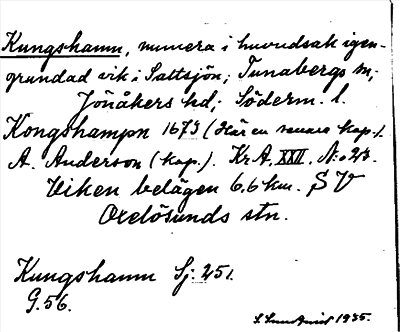 Kungshamn, numera i huvudsak igen-
grundad vik i Saltsjön; Tunabergs sn;
Jönåkers hd; Söderm. l.
Kongshampn 1673 (Här en senare kop.).
A. Anderson (kop.). Kr.A. XXII. N:o 28.
Viken belägen 6,6 km. SV
Oxelösunds stn.
Kungshamn Sj: 251.
G.56.
1935.